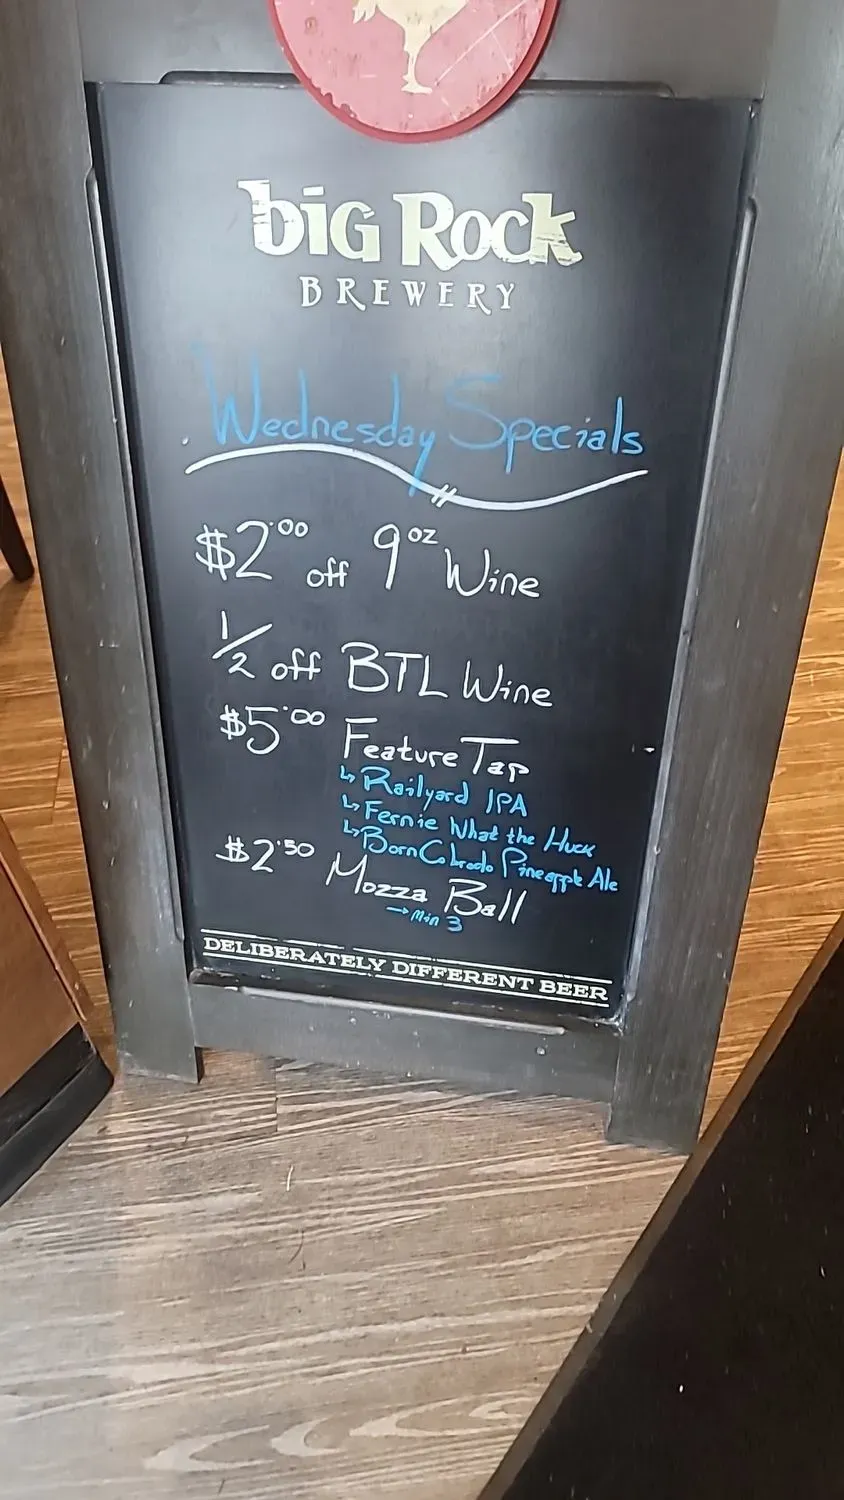 big Rock
BREWERY
Wednesday Specials
$2.00 off 9oz Wine
1/2 off BTL Wine
$5.00 Feature Tap
↳ Railyard IPA
↳ Fernie What the Huck
↳ Born Colorado Pineapple Ale
$2.50 Mozza Ball
→ Min 3
DELIBERATELY DIFFERENT BEER